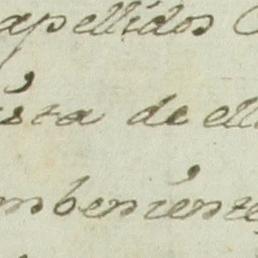 apellidos
ista de ell
nsbeniente